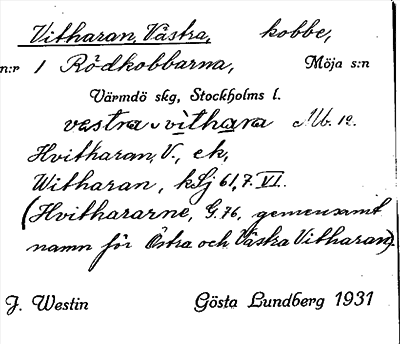 Vitharan, Västra, kobbe,
n:r 1 Rödkobbarna, Möja s:n
Värmdö skg, Stockholms l.
vestra vithara Mb. 12.
Hvitharan, V., ek,
Witharan, kSj 61, 7. VI.
(Hvithararne, G. 76, gemensamt
namn för Östra och Västra Vitharan).
J. Westin Gösta Lundberg 1931